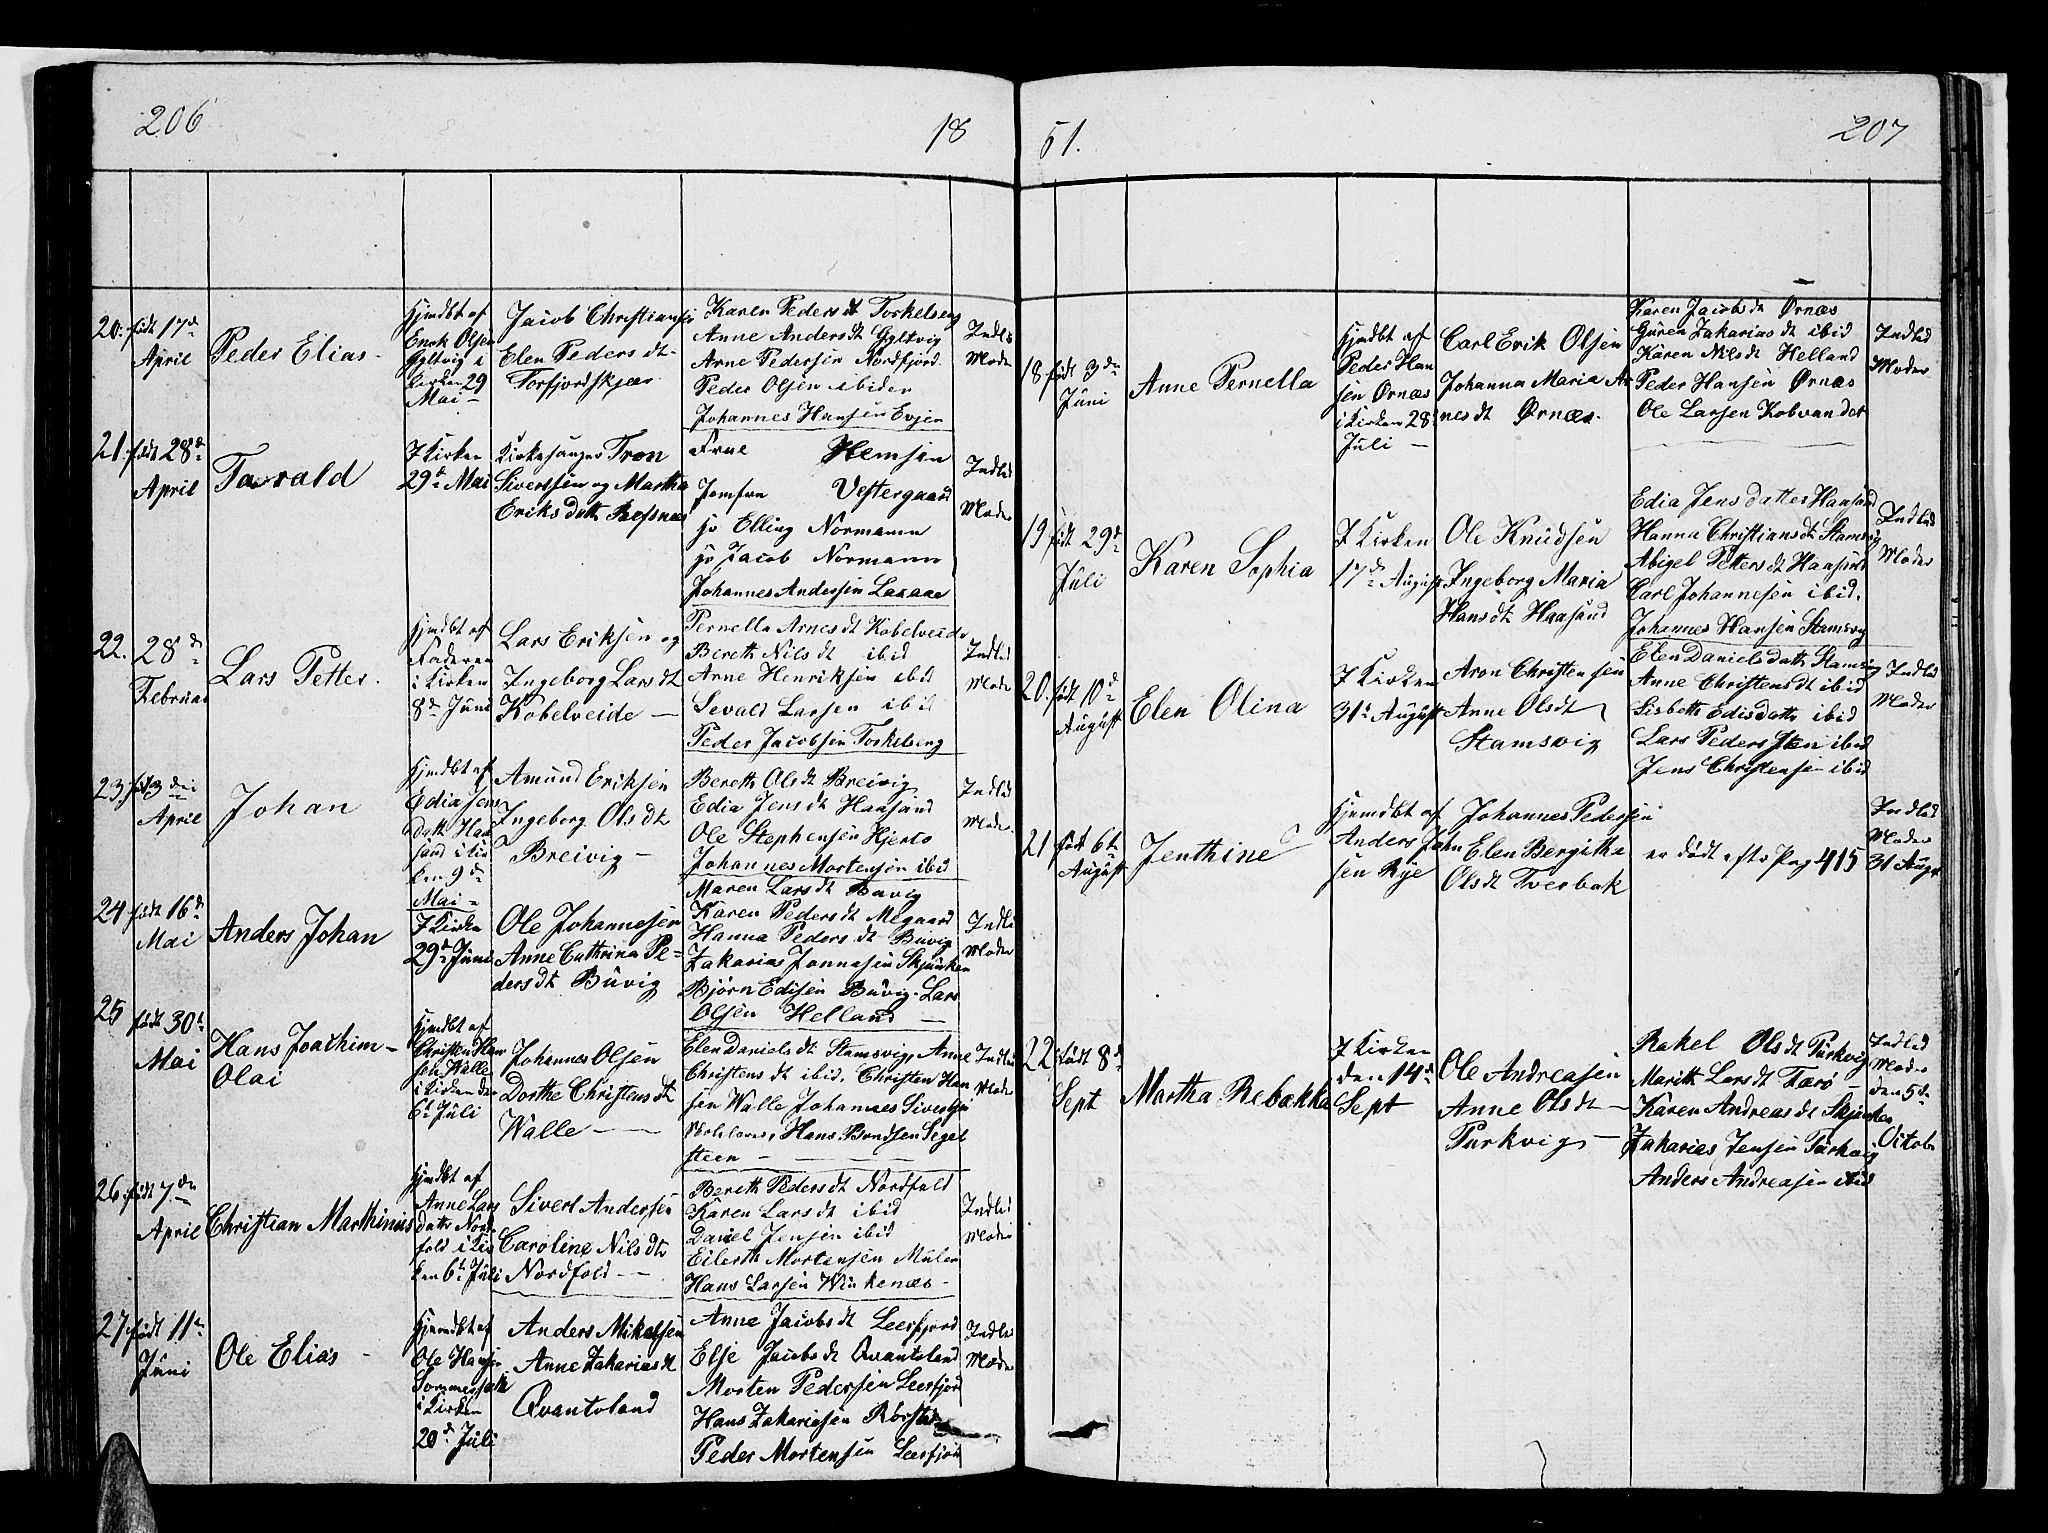 206
18
20. født 17de April
Peder Elias.
Hjmdbt af
Enok Olsen
Gyltvig i
Kirken 29
Mai
Jacob Christiansen
Elen Pedersdt
Torfjordskjær
Karen Pedersdt Torkelseng
Anne Andersdt Gyltvig
Arne Pedersen Nordfjord
Peder Olsen ibiden
Johannes Hansen Evjen
Indled
Moder
21. født 28de April
Torvald
I Kirken
29de Mai
Kirkesanger Tron
Sivertsen og Martha
Eriksdatt
Frue Hemsen
Jomfru Vestergaard
Hr Elling Normann
Hr Jacob Normann
Johannes Andersen
Indled
Moder
22. 28de Februar
Lars Petter.
Hjmdbt af
Faderen
i Kirken
8de Juni
Lars Eriksen og
Ingeborg Larsdt
Kobelveide
Pernella Arnesdt Kobelveide
Bereth Nilsdt ibid
Anne Henriksen ibd
Sevald Larsen ibid
Peder Jacobsen Torkelseng
Indled
Moder
23. født 3die April
Johan
Hjmdbt af
Edia Jens
datt Haa
sand i Kir
ken 9de
Mai
Amund Eriksen
Ingeborg Olsdt
Breivig
Bereth Olsdt Breivig
Edia Jensdt Haasand
Ole Stephensen Hjerto
Johannes Mortensen ibid
Indled
Moder
24 født 16de Mai
Anders Johan
I Kirken
29de Juni
Ole Johannesen
Anne Cathrina Pe-
dersdt Buvig
Maren Larsdt Buvig
Karen Pedersdt Megaard
Hanna Pedersdt Buvig
Zakarias Jonnasen
Bjørn Edisen Buvig. Lars
Olsen Helland
Indled
Moder
25 født 30te Mai
Hans Joachim
Olai
Hjmdbt af
Christen Han
sen Walle
i Kirken den
6te Juli
Johannes Olsen
Dorthe Christensdt
Walle
Elen Danielsdt Stamsvig, Anne
Christensdt ibid. Christen Han
sen Walle Johannes Sivertsen
Hans Bondsen Segel
steen
Indled
Moder
26. født 7de April
Christian Marthinus
Hjmdbt af
Anne Lars
datr Nord
fold i Kir
ken 6te Juli
Sivert Andersen
Caroline Nilsdtr
Nordfold
Bereth Pedersdt Nordfold
Karen Larsdt ibid
Daniel Jensen ibid
Eilerth Mortensen
Hans Larsen Vinkenæs
Indled
Moder
27. født 11te Juni
Ole Elias
Hjemdbt af
Ole Hansen
Sommerset
i Kirken
20de Juli
Anders Mikelsen
Anne Zakariasdt
Qvantoland
Anne Jacobsdt Leerfjord
Else Jacobsdt Qvantoland
Morten Pedersen Leerfjord
Hans Zakariasen Rørstad
Peder Mortensen Leerfjord
Indled
Moder
51.
207
18 født 3die Juni
Anne Pernella
Hjmdbt af
Peder Han
sen Ørnæs
i Kirken 28
Juli
Carl Erik Olsen
Johanna Maria Ar
nesdt Ørnæs.
Karen Jacobsdt Ørnæs
Guren Zakariasdt ibid
Karen Nilsdt Helland
Peder Hansen Ørnæs
Ole Larsen Kobvandet
Indled
Moder
19 født 29de Juli
Karen Sophia
I Kirken
17de August
Ole Knudsen
Ingeborg Maria
Hansdt Haasand
Edia Jensdatter Haasand
Hanna Christiansdt Stamsvig
Abigel Pettersdt Haasand
Carl Johannesen ibid.
Johannes Hansen Stamsvig
Indled
Moder
20. født 10de August
Elen Olina
I Kirken
31te August
Aron Christensen
Anne Olsdt
Stamsvig
Elen Danielsdatt Stamsvig
Anne Christensdt ibid
Lisbeth Edisdatt ibid
Lars Pedersen ibid
Jens Christensen ibid
Indled
Moder
21 født 6te August
Jenthine
Hjemdbt af
Anders John
sen Rye
Johannes Pedersen
Elen Bergitha
Olsdt Tverbak
er dødt efter Pag 415
Indled
Moder
31 Aug
22 født 8de Sept
Martha Rebækka
I Kirken
den 14de
Sept
Ole Andreasen
Anne Olsdt
Purkvig
Rakel Olsdt Purkvig
Marith Larsdt Færø
Karen Andreasdt
Zakarias Jensen Purkvig
Anders Andreasen ibid
Indled
Moder
den 5de
Octob